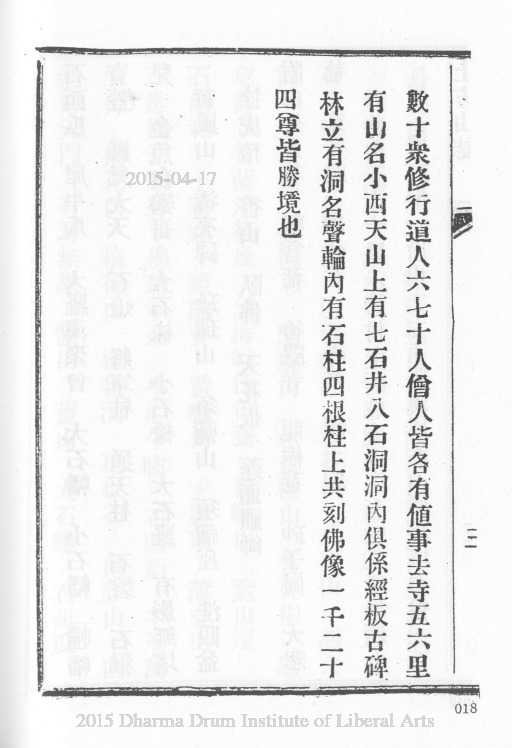 數十衆修行道人六七十人僧人皆各有値事去寺五六里
有山名小西天山上有七石井八石洞洞內俱係經板古碑
林立有洞名聲輪內有石柱四根柱上共刻佛像一千二十
四尊皆勝境也
2015-04-17
二
018
2015 Dharma Drum Institute of Liberal Arts